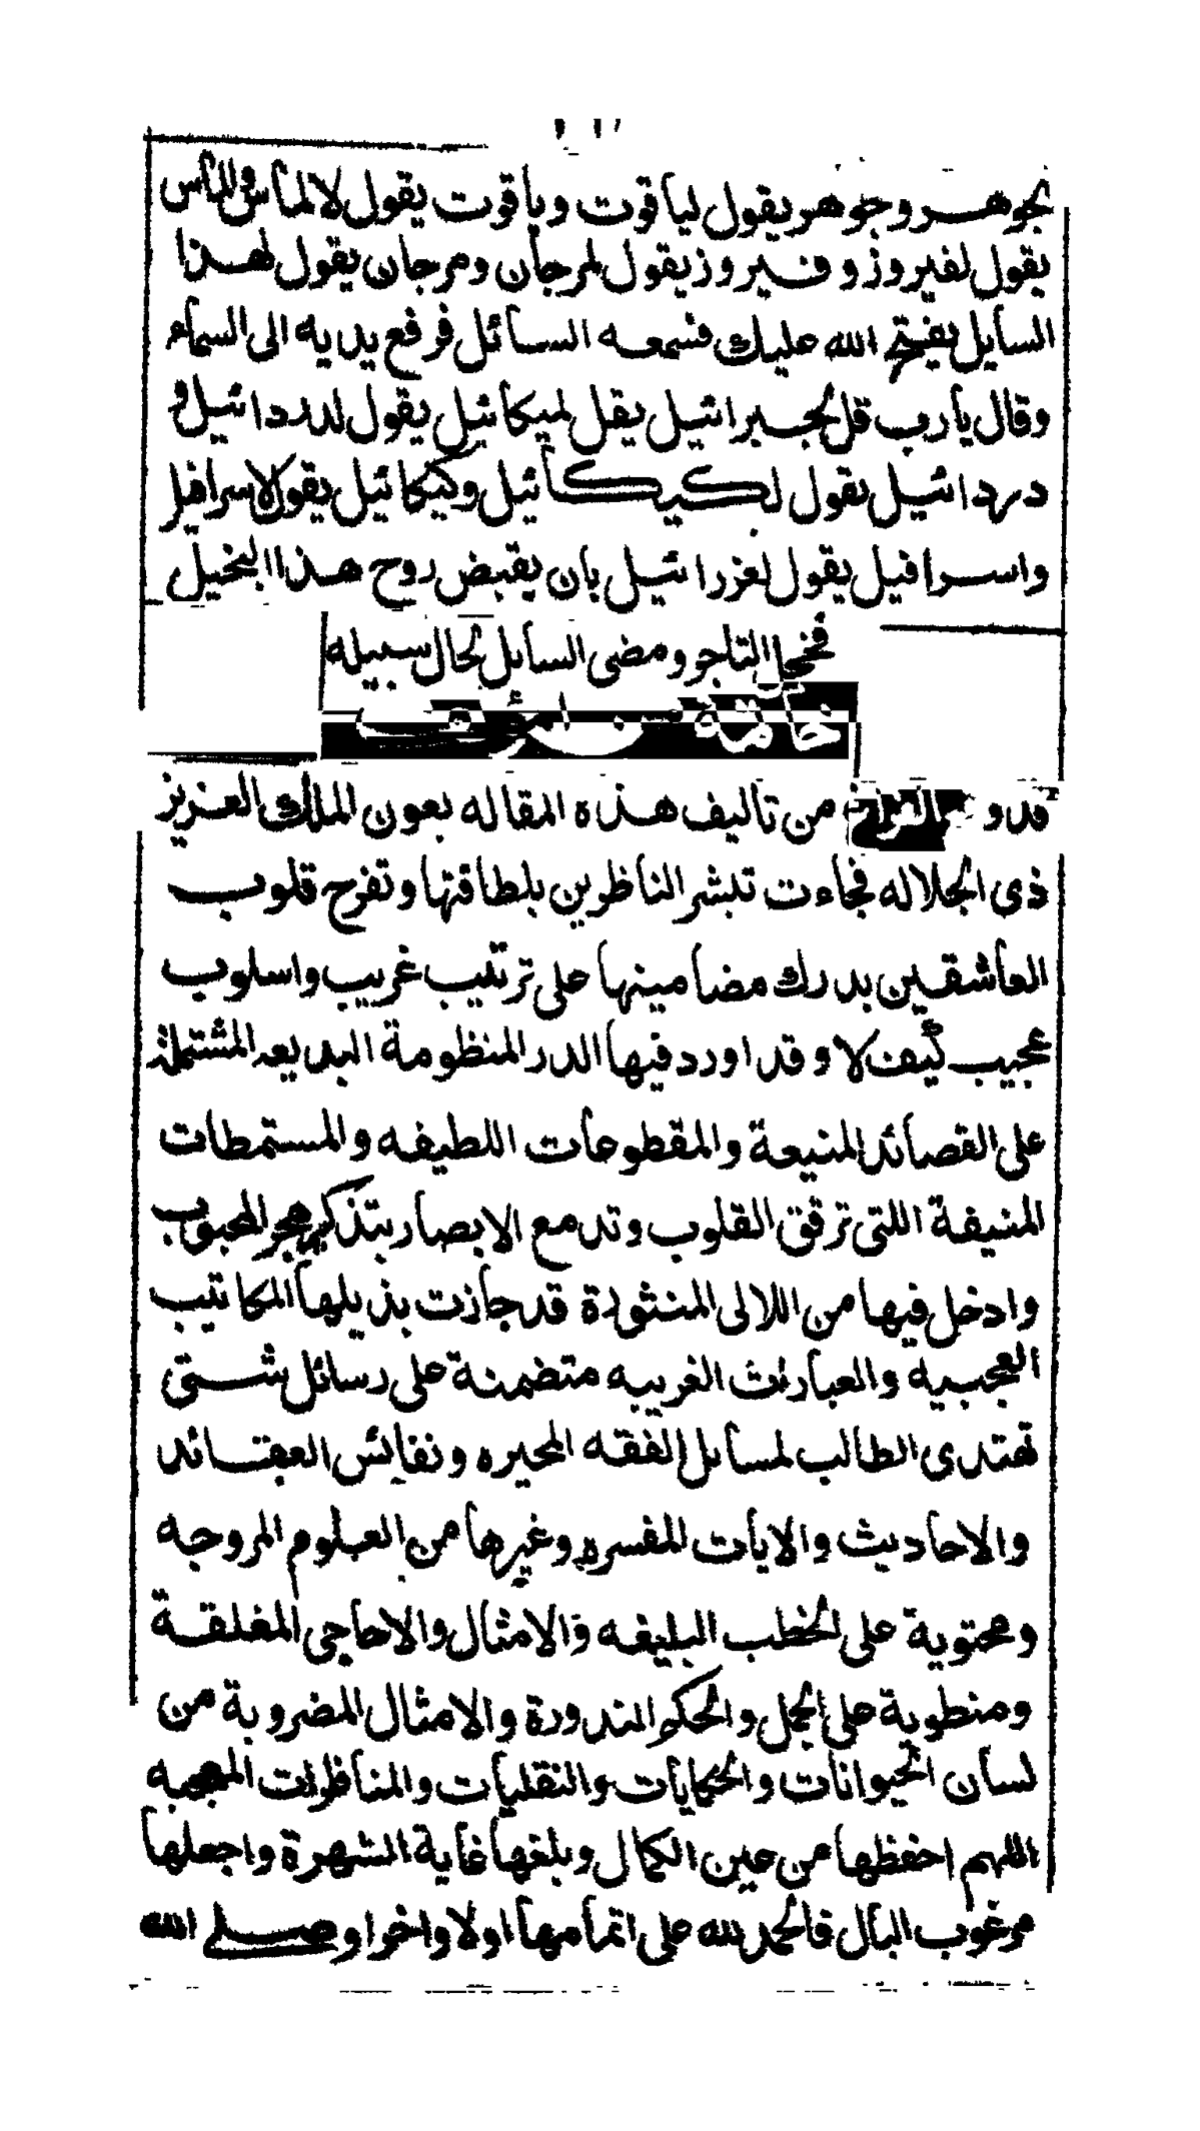 لجوهر وجوهر يقول لياقوت وياقوت يقول لالماس والماس
يقول لفيروز وفيروز يقول لمرجان ومرجان يقول لهذا
السايل يفيتح الله عليك فسمعه السائل فرفع يديه الى السماء
وقال يارب قل لجبرائيل يقل لميكائيل يقول لدردائيل و
دردائيل يقول لكيكائيل وكيكائيل يقول لاسرافيل
واسرافيل يقول لعزرائيل بان يقبض روح هذا البخيل
فخجل التاجر ومضى السايل لحال سبيله
خاتمة
قد و من تاليف هذه المقاله بعون الملك العزيز
ذى الجلاله فجاءت تبشر الناظرين بلطاقتها وتفرح قلوب
العاشقين بدرك مضامينها على ترتيب غريب واسلوب
عجيب كيف لا وقد اورد فيها الدرر المنظومة البديعه المشتملة
على القصائد المنيعة والمقطوعات اللطيفه والمستمطات
المنيفة اللتى ترقق القلوب وتدمع الابصار بتذكير هجر المحبوب
وادخل فيها من اللالى المنثورة قد جازت بذيلها المكاتيب
العجيبه والعبارات الغريبه متضمنة على رسائل شتى
تهتدى الطالب لمسايل الفقه المحيره ونفايس العقائد
والاحاديث والايات المفسره وغيرها من العلوم المروجه
ومحتوية على الخطب البليغه والامثال والاحاجى المغلقة
ومنطوية على الجمل والحكم المندورة والامثال المضروبة من
لسان الحيوانات والحكايات والنقليات والمناظرات المعجبه
اللهم احفظها من عين الكمال وبلغها غاية الشهرة واجعلها
مرغوب البال فالحمد لله على اتمامها اولا واخرا وصلى الله